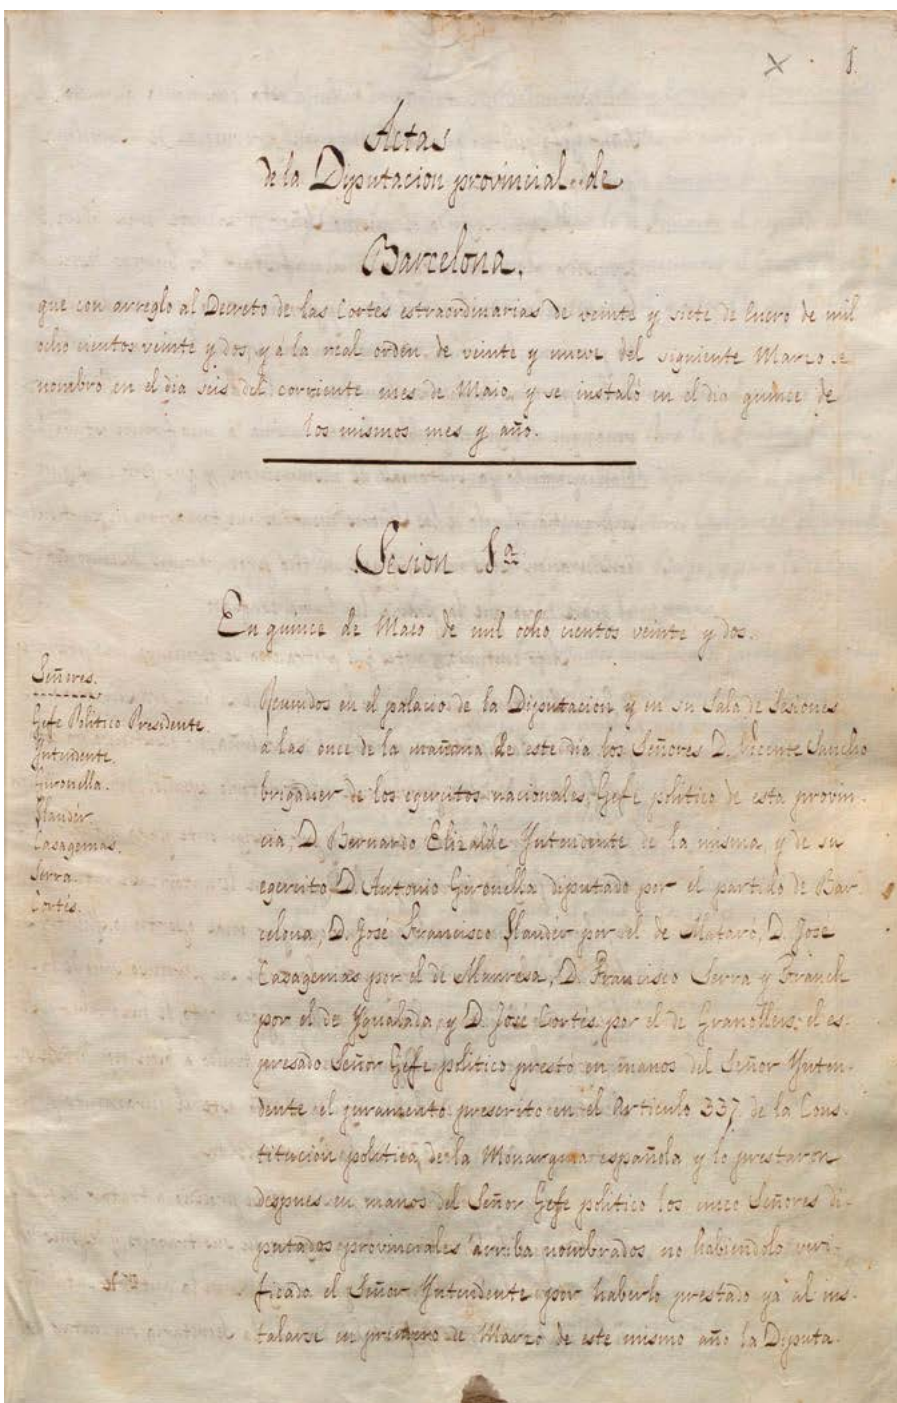 1.
Actas
de la Diputacion provincial de
Barcelona,
que con arreglo al Decreto de las Cortes estraordinarias de veinte y siete de Enero de mil
ocho cientos veinte y dos, y á la real orden de veinte y nueve del siguiente Marzo se
nombró en el dia seis del corriente mes de Maio, y se instaló en el dia quince de
los mismos mes y año.
Sesion 1ª
En quince de Maio de mil ocho cientos veinte y dos.
Señores.
Gefe Politico Presidente.
Yntendente.
Gironella.
Llandér.
Casagemas.
Serra.
Cortés.
Reunidos en el palacio de la Diputacion y en su Sala de Sesiones
a las once de la mañana de este dia los Señores D. Vicente Sancho
brigadier de los egercitos nacionales, Gefe politico de esta provin-
cia, D. Bernardo Elizalde Yntendente de la misma, y de su
egercito, D. Antonio Gironella diputado por el partido de Bar-
celona, D. José Francisco Llandér por el de Mataró, D. José
Casagemas por el de Manresa, D. Francisco Serra y Franch
por el de Ygualada, y D. José Cortés por el de Granollers; el es-
presado Señor Gefe politico prestó en manos del Señor Ynten-
dente el juramento prescrito en el articulo 337 de la Cons-
titución politica de la Monarquia española y lo prestaron
despues en manos del Señor Gefe politico los cinco Señores di-
putados provinciales arriba nombrados, no habiendolo veri-
ficado el Señor Yntendente por haberlo prestado ya al ins-
talarse en primero de Marzo de este mismo año la Diputa-